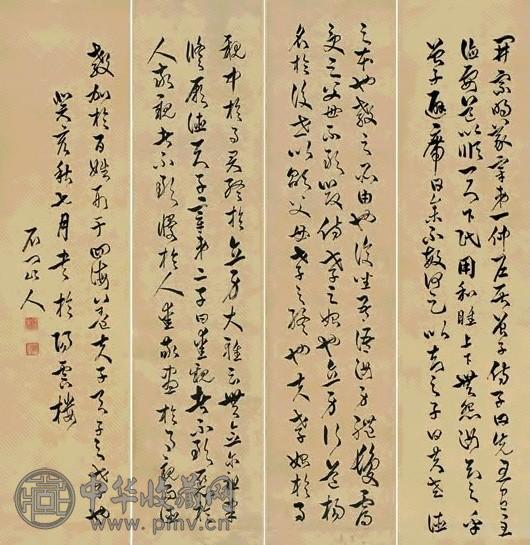 開宗明義章第一仲尼居曾子侍子曰先王有至
德要道以順天下民用和睦上下無怨汝知之乎
曾子避席曰參不敏何足以知之子曰夫孝德
之本也教之所由也復坐吾語汝身體髮膚
受之父母不敢毀傷孝之始也立身行道揚
名於後世以顯父母孝之終也夫孝始於事
親中於事君終於立身大雅云無念爾祖聿
脩厥德天子章第二子曰愛親者不敢惡於
人敬親者不敢慢於人愛敬盡於事親而德
教加於百姓刑于四海蓋天子之孝也
癸亥秋七月書於陽雲樓
石山人
中华收藏网
www.pmv.cn